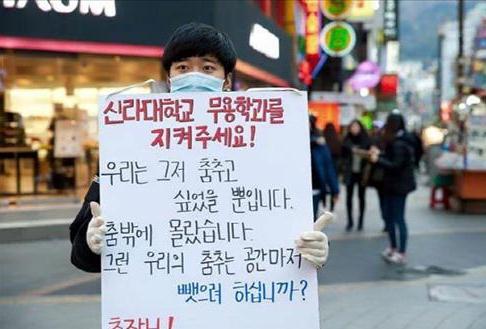 신라대학교 무용학과를
지켜주세요!
우리는 그저 춤추고
싶었을 뿐입니다.
춤밖에 몰랐습니다.
그런 우리의 춤추는 공간마저
뺏으려 하십니까?
총장님!